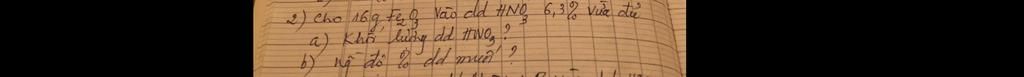 2) Cho 16g Fe2O3 vào dd HNO3 6,3% vừa đủ
a) Khối lượng dd HNO3?
b) Ng độ % dd muối?